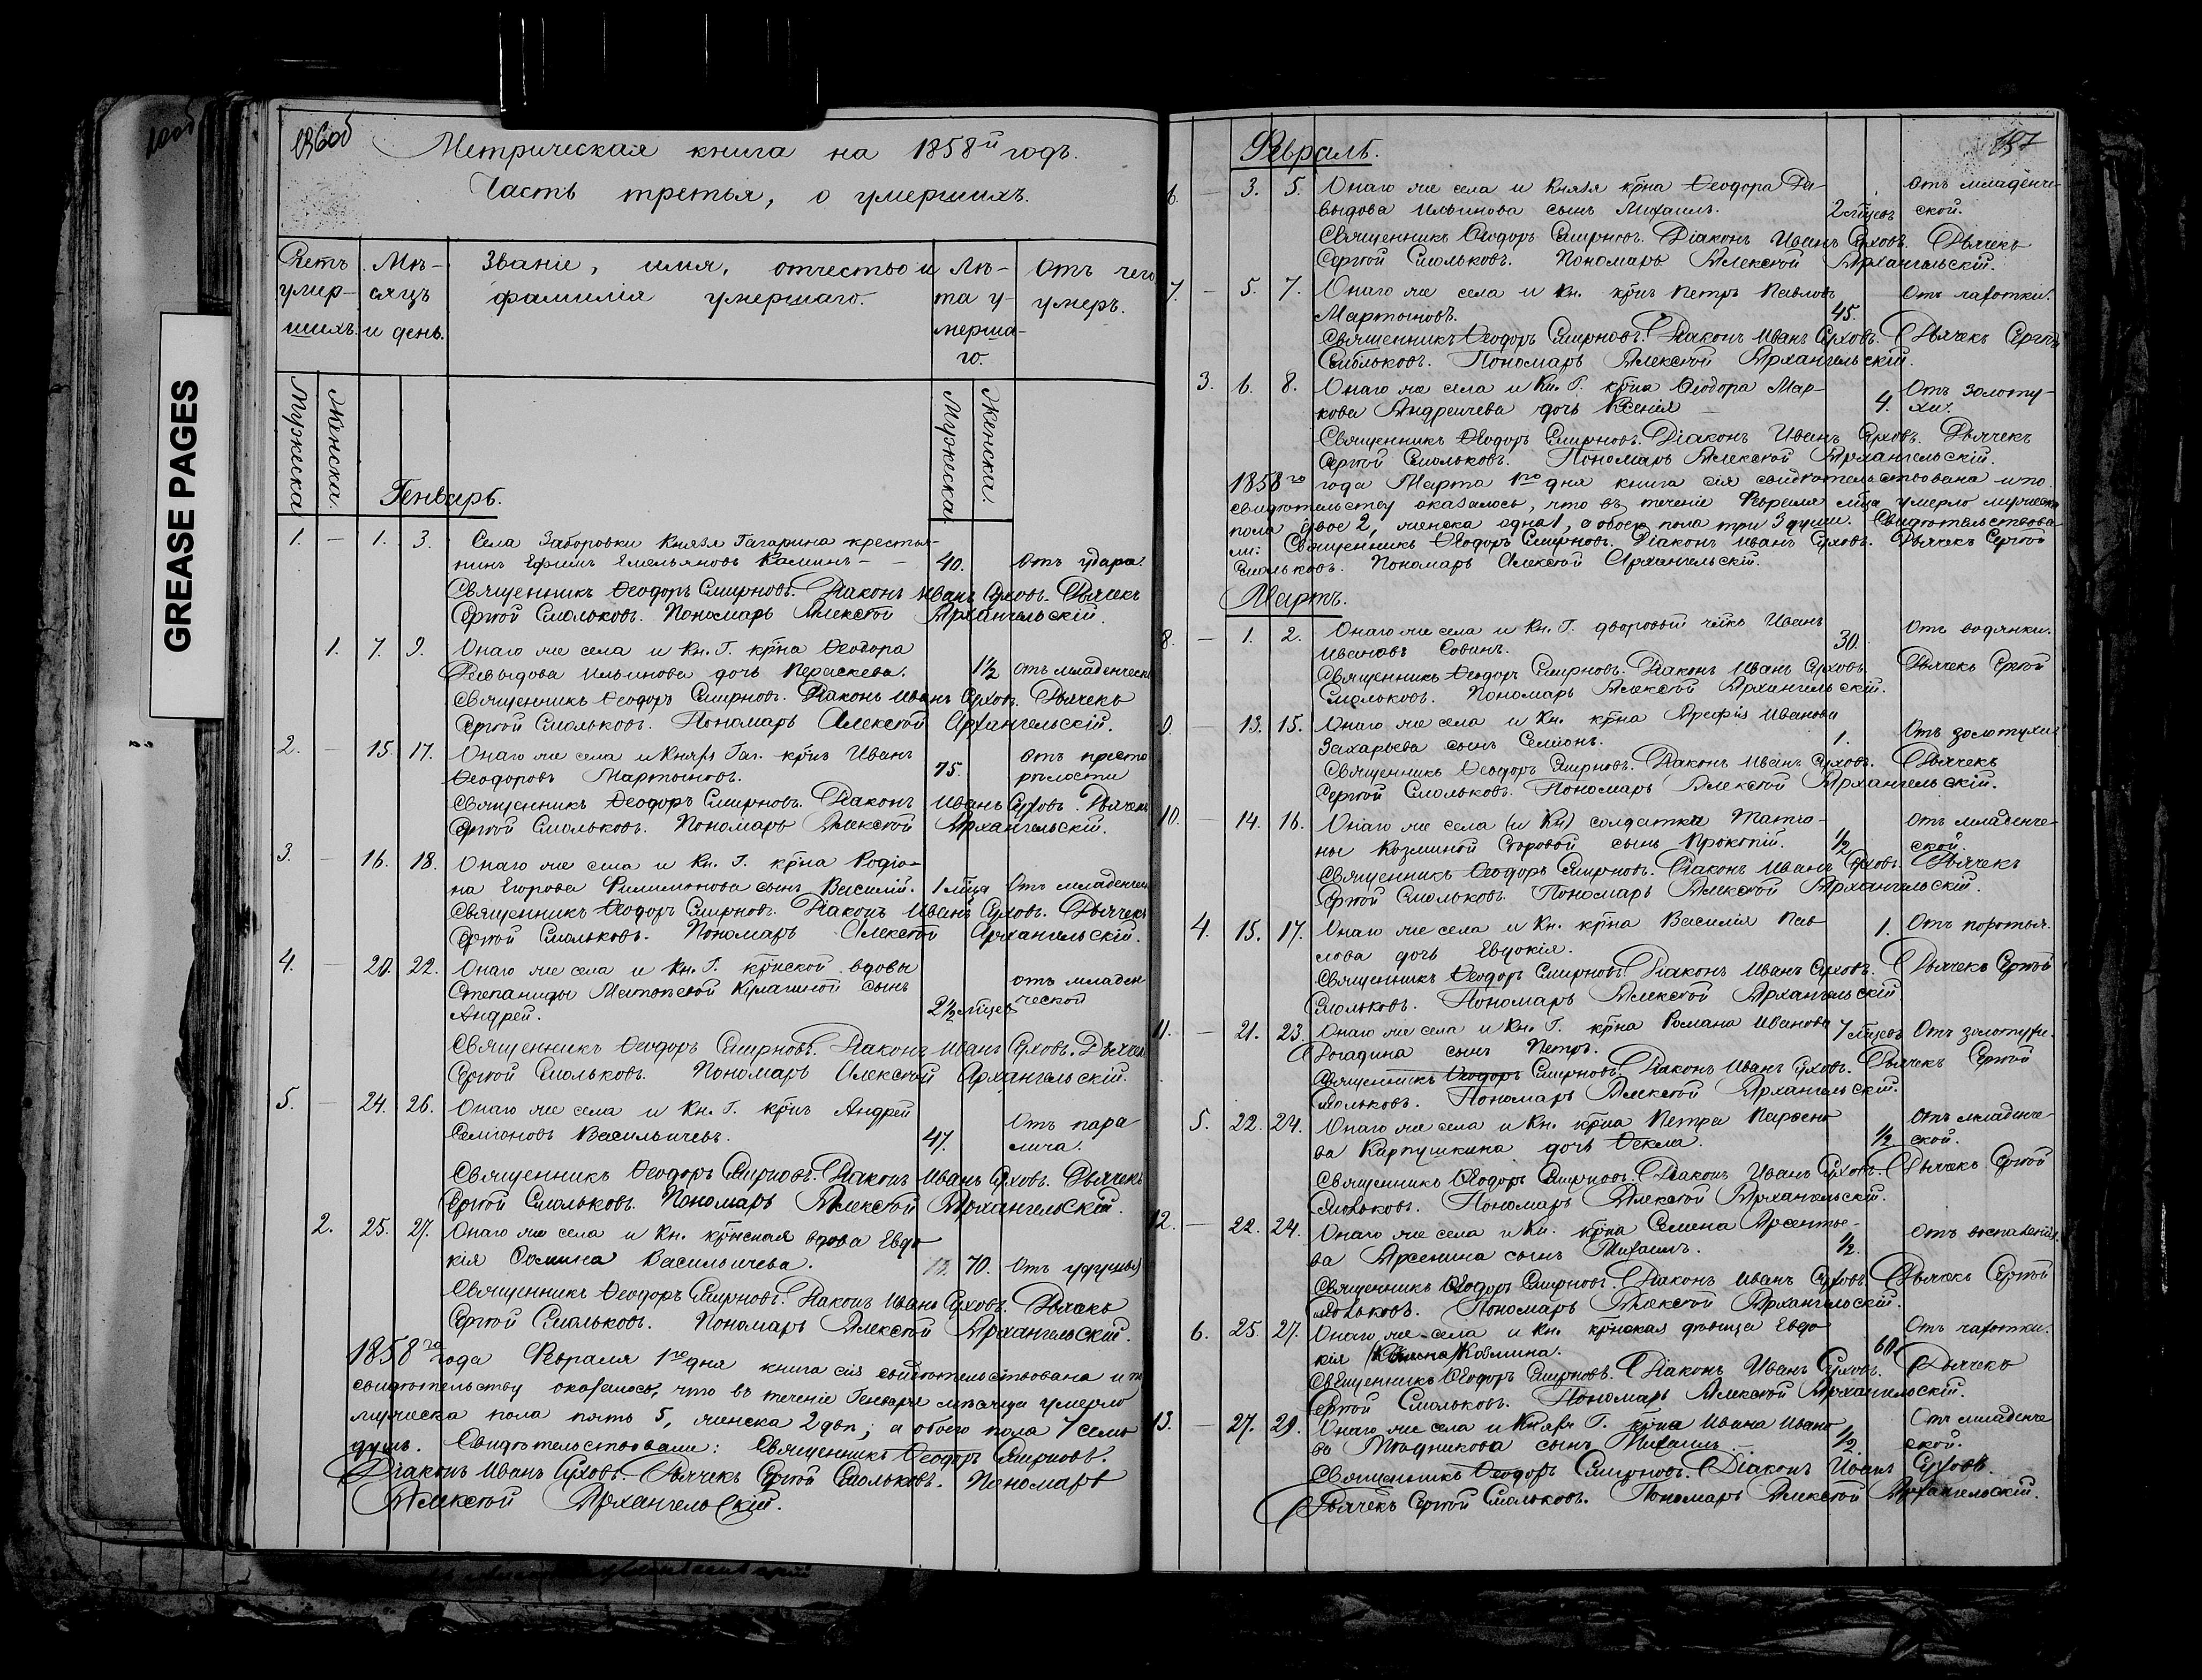 GREASE PAGES
Метрическая книга на 1858й годъ.
Часть третья, о умершихъ.
Счетъ умер-шихъ.
Мѣ-сяцъ и день.
Званіе, имя, отчество и фамилія умершаго.
Лѣ-та у-мерша-го.
Отъ чего умеръ.
Мужеска
Женска.
Мужеска
Женска.
Генварь.
1. — 1. 3. Села Заборовки Князя Гагарина крестья-
нинъ Ефимъ Емельяновъ Каминъ — — 40. Отъ удара.
Священникъ Ѳеодоръ Смирновъ. Діаконъ Иванъ Суховъ. Дьячекъ
Сергѣй Смольковъ. Пономарь Алексѣй Архангельскій.
1. 7. 9. Онаго же села и Кн. Г. кр̃на Ѳеодора
Давыдова Ильинова дочь Параскева. 1½ Отъ младенческ
Священникъ Ѳеодоръ Смирновъ. Діаконъ Иванъ Суховъ. Дьячекъ
Сергѣй Смольковъ. Пономарь Алексѣй Архангельскій.
2. — 15. 17. Онаго же села и Князя Гаг. кр̃нъ Иванъ Отъ престо
Ѳеодоровъ Мартыновъ. 75. рѣлости
Священникъ Ѳеодоръ Смирновъ. Діаконъ Иванъ Суховъ. Дьячекъ
Сергѣй Смольковъ. Пономарь Алексѣй Архангельскій.
3. — 16. 18. Онаго же села и Кн. Г. кр̃на Родіо-
на Егорова Филимонова сынъ Василій. 1 мц̃а Отъ младенческ
Священникъ Ѳеодоръ Смирновъ. Діаконъ Иванъ Суховъ. Дьячекъ
Сергѣй Смольковъ. Пономарь Алексѣй Архангельскій.
4. — 20. 22. Онаго же села и Кн. Г. кр̃нской вдовы
Степаниды сынъ отъ младен
Андрей. 2½ мц̃евъ ческой
Священникъ Ѳеодоръ Смирновъ. Діаконъ Иванъ Суховъ. Дьячек
Сергѣй Смольковъ. Пономарь Алексѣй Архангельскій.
5. — 24. 26. Онаго же села и Кн. Г. кр̃нъ Андрей Отъ пара
Семіоновъ Васильичевъ. 47. лича.
Священникъ Ѳеодоръ Смирновъ. Діаконъ Иванъ Суховъ. Дьячекъ
Сергѣй Смольковъ. Пономарь Алексѣй Архангельскій.
2. 25. 27. Онаго же села и Кн. кр̃нская вдова Евдо
кія Васильичева. 70. Отъ удушья
Священникъ Ѳеодоръ Смирновъ. Діаконъ Иванъ Суховъ. Дьячекъ
Сергѣй Смольковъ. Пономарь Алексѣй Архангельскій.
1858го года Февраля 1го дня книга сія свидѣтельствована и по
свидѣтельству оказалось, что въ теченіе Генваря мѣсяца умерло
мужеска пола пять 5, женска 2 двѣ; а обоего пола 7 семь
душъ. Свидѣтельствовали: Священникъ Ѳеодоръ Смирновъ.
Діаконъ Иванъ Суховъ. Дьячекъ Сергѣй Смольковъ. Пономарь
Алексѣй Архангельскій.
Февраль.
6. — 3. 5. Онаго же села и Князя кр̃на Ѳеодора Да- Отъ младенче-
выдова Ильинова сынъ Михаилъ. 2 мц̃евъ ской.
Священникъ Ѳеодоръ Смирновъ. Діаконъ Иванъ Суховъ. Дьячекъ
Сергѣй Смольковъ. Пономарь Алексѣй Архангельскій.
7. — 5. 7. Онаго же села и Кн. кр̃нъ Петръ Павловъ Отъ чахотки.
Мартыновъ. 45.
Священникъ Ѳеодоръ Смирновъ. Діаконъ Иванъ Суховъ. Дьячекъ Сергѣй
Смольковъ. Пономарь Алексѣй Архангельскій.
3. 6. 8. Онаго же села и Кн. Г. кр̃на Ѳеодора Мар- Отъ золоту-
кова Андреичева дочь Ксенія 4. хи.
Священникъ Ѳеодоръ Смирновъ. Діаконъ Иванъ Суховъ. Дьячекъ
Сергѣй Смольковъ. Пономарь Алексѣй Архангельскій.
1858го года Марта 1го дня книга сія свидѣтельствована и по
свидѣтельству оказалось, что въ теченіе Февраля мц̃а умерло мужеска
пола двое 2, женска одна 1, а обоего пола три 3 души. Свидѣтельствова-
ли: Священникъ Ѳеодоръ Смирновъ. Діаконъ Иванъ Суховъ. Дьячекъ Сергѣй
Смольковъ. Пономарь Алексѣй Архангельскій.
Мартъ.
8. — 1. 2. Онаго же села и Кн. Г. дворовый Иванъ Отъ водянки.
Ивановъ Совинъ. 30.
Священникъ Ѳеодоръ Смирновъ. Діаконъ Иванъ Суховъ. Дьячекъ Сергѣй
Смольковъ. Пономарь Алексѣй Архангельскій.
9. — 13. 15. Онаго же села и Кн. кр̃на Иванова Отъ золотухи
Захарьева сынъ Семіонъ. 1.
Священникъ Ѳеодоръ Смирновъ. Діаконъ Иванъ Суховъ. Дьячекъ
Сергѣй Смольковъ. Пономарь Алексѣй Архангельскій.
10. — 14. 16. Онаго же села (и Кн) солдатки Татьо- Отъ младенче-
ны Козминой сынъ Прокопій. ½ ской.
Священникъ Ѳеодоръ Смирновъ. Діаконъ Иванъ Суховъ. Дьячекъ
Сергѣй Смольковъ. Пономарь Алексѣй Архангельскій.
4. 15. 17. Онаго же села и Кн. кр̃на Василія Пав 1. Отъ
лова дочь Евдокія.
Священникъ Ѳеодоръ Смирновъ. Діаконъ Иванъ Суховъ. Дьячекъ Сергѣй
Смольковъ. Пономарь Алексѣй Архангельскій.
11. — 21. 23. Онаго же села и Кн. Г. кр̃на Романа Иванова 7 мц̃евъ Отъ золотухи.
Рогадина сынъ Петръ.
Священникъ Ѳеодоръ Смирновъ. Діаконъ Иванъ Суховъ. Дьячекъ Сергѣй
Смольковъ. Пономарь Алексѣй Архангельскій.
5. 22. 24. Онаго же села и Кн. кр̃на Петра Парѳено Отъ младенче
ва Карпушкина дочь Ѳекла. ½ ской.
Священникъ Ѳеодоръ Смирновъ. Діаконъ Иванъ Суховъ. Дьячекъ Сергѣй
Смольковъ. Пономарь Алексѣй Архангельскій.
12. — 22. 24. Онаго же села и Кн. кр̃на Семена Арсентье- Отъ воспаленія.
ва Арсенина сынъ Михаилъ. ½.
Священникъ Ѳеодоръ Смирновъ. Діаконъ Иванъ Суховъ. Дьячекъ Сергѣй
Смольковъ. Пономарь Алексѣй Архангельскій.
6. 25. 27. Онаго же села и Кн. кр̃нская дѣвица Евдо Отъ чахотки.
кія Козмина. 60.
Священникъ Ѳеодоръ Смирновъ. Діаконъ Иванъ Суховъ. Дьячекъ
Сергѣй Смольковъ. Пономарь Алексѣй Архангельскій.
13. — 27. 29. Онаго же села и Князя Г. кр̃на Ивана Ивано Отъ младенче
ва сынъ Михаилъ. ½. ской.
Священникъ Ѳеодоръ Смирновъ. Діаконъ Иванъ Суховъ.
Дьячекъ Сергѣй Смольковъ. Пономарь Алексѣй Архангельскій.